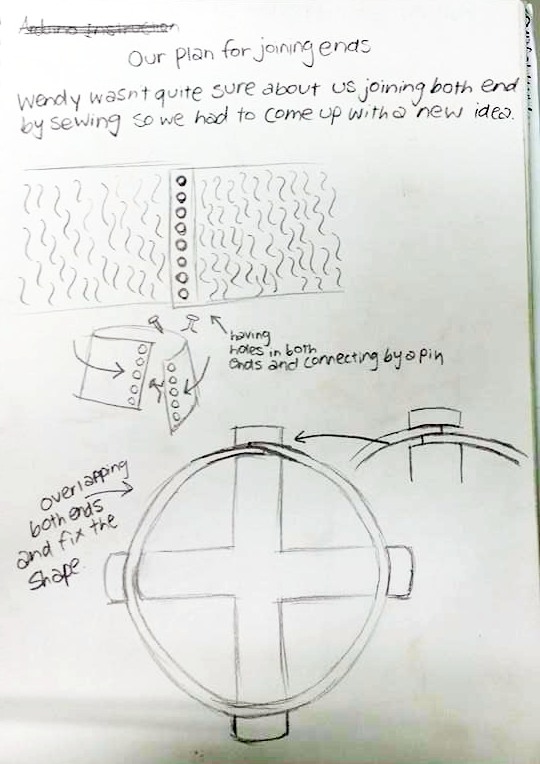 Arduino Instruction
Our plan for joining ends
Wendy wasn't quite sure about us joining both end
by sewing so we had to come up with a new idea.
having
holes in both
ends and connecting by a pin
overlapping
both ends
and fix the
shape.